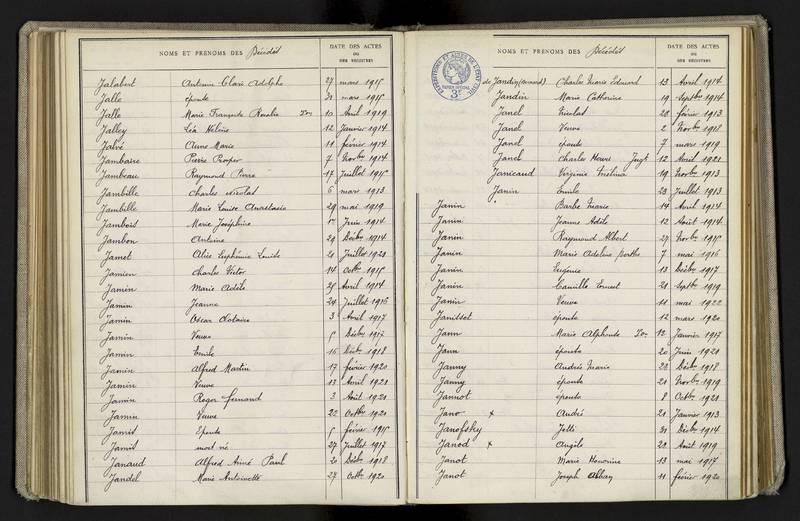 NOMS ET PRÉNOMS DES Décédés
DATE DES ACTES
OU
DES REGISTRES
Jalabert Antonin Clair Adolphe 27 mars 1915
Jalle épouse 31 mars 1915
Jalle Marie Françoise Rosalie 10 Avril 1919
Jalley Léa Hélène 12 Janvier 1914
Jalvé Anne Marie 11 février 1914
Jambaire Pierre Prosper 7 Novbre 1914
Jambeau Raymond Pierre 17 Juillet 1915
Jambille Charles Nicolas 6 mars 1913
Jambille Marie Louise Anastasie 29 mai 1919
Jambois Marie Joséphine Juin 1914
Jambon Antoine 29 Décbre 1914
Jamet Alice Euphémie Louise 21 Juillet 1921
Jamien Charles Victor 14 Octbre 1915
Jamin Marie Adèle 25 Avril 1914
Jamin Jeanne 29 Juillet 1916
Jamin Oscar Clotaire 3 Avril 1917
Jamin Veuve 5 Décbre 1917
Jamin Emile 16 Décbre 1918
Jamin Alfred Martin 17 février 1920
Jamin Veuve 13 Avril 1921
Jamin Roger fernand 3 Août 1921
Jamin Veuve 22 Octbre 1920
Jamis Epouse 5 février 1915
Jamil mort né 27 Juillet 1917
Janaud Alfred Aimé Paul 21 Décbre 1918
Jandel Marie Antoinette 27 Octbre 1920
NOMS ET PRÉNOMS DES Décédés
DATE DES ACTES
OU
DES REGISTRES
de Jandin Charles Marie Edouard 13 Avril 1914
Jandin Marie Catherine 19 Septbre 1914
Janel Nicolas 28 février 1913
Janel Veuve 2 Novbre 1918
Janel épouse 7 mars 1919
Janel Charles Henri 12 Avril 1921
Janicaud Virginie 19 Novbre 1913
Janin Emile 23 Juillet 1913
Janin Barbe Marie 14 Avril 1914
Janin Jeanne Adèle 12 Août 1914
Janin Raymond Albert 27 Novbre 1915
Janin Marie Adeline Berthe 7 mai 1916
Janin Eugénie 13 Décbre 1917
Janin Camille Ernest 21 Septbre 1919
Janin Veuve 11 mai 1922
Janisset épouse 12 mars 1920
Jann Marie Alphonse 12 Janvier 1917
Jann épouse 20 Juin 1920
Janny Andrée Marie 23 Décbre 1918
Janny épouse 21 Novbre 1919
Jannot épouse 8 Octbre 1921
Jano x André 21 Janvier 1913
Janofsky Jetti 31 Décbre 1914
Janod x Angèle 22 Août 1919
Janot Marie Honorine 13 mai 1917
Janot Joseph 11 février 1920